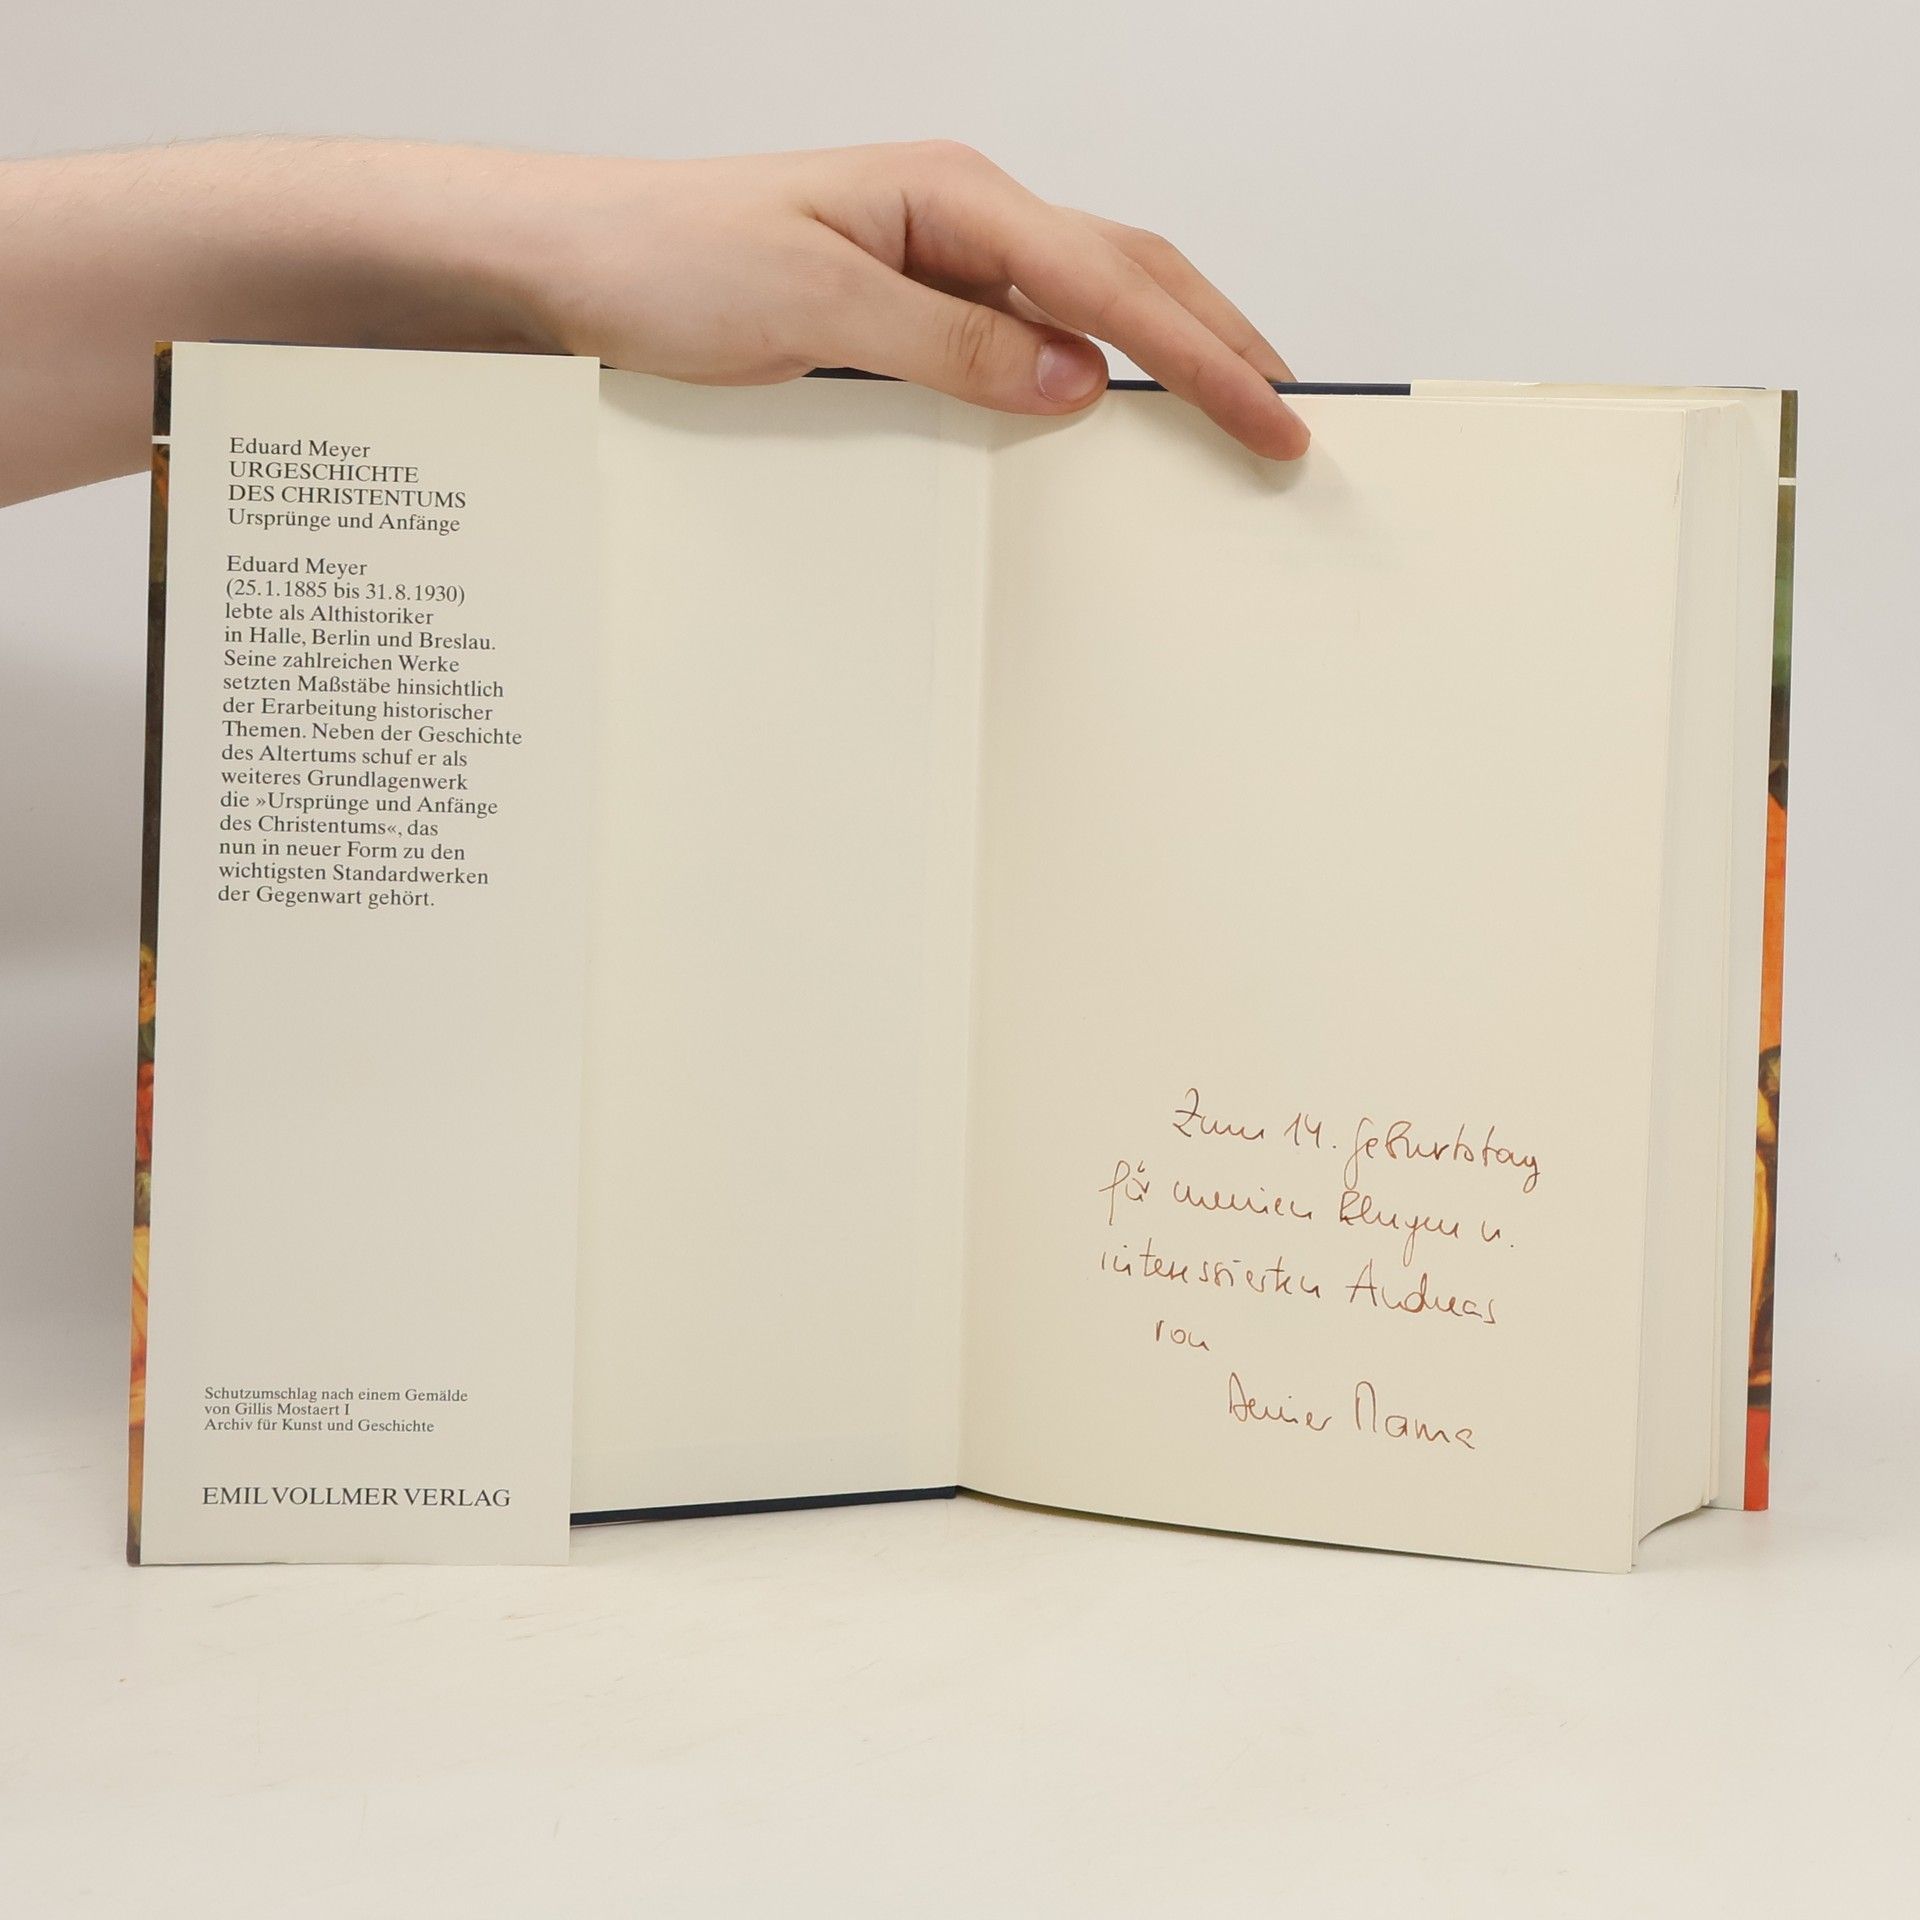 Eduard Meyer
URGESCHICHTE
DES CHRISTENTUMS
Ursprünge und Anfänge
Eduard Meyer
(25.1.1885 bis 31.8.1930)
lebte als Althistoriker
in Halle, Berlin und Breslau.
Seine zahlreichen Werke
setzten Maßstäbe hinsichtlich
der Erarbeitung historischer
Themen. Neben der Geschichte
des Altertums schuf er als
weiteres Grundlagenwerk
die »Ursprünge und Anfänge
des Christentums«, das
nun in neuer Form zu den
wichtigsten Standardwerken
der Gegenwart gehört.
Schutzumschlag nach einem Gemälde
von Gillis Mostaert I
Archiv für Kunst und Geschichte
EMIL VOLLMER VERLAG
Zum 14. Geburtstag
für meinen klugen u.
interessierten Andreas
von
Deiner Mama